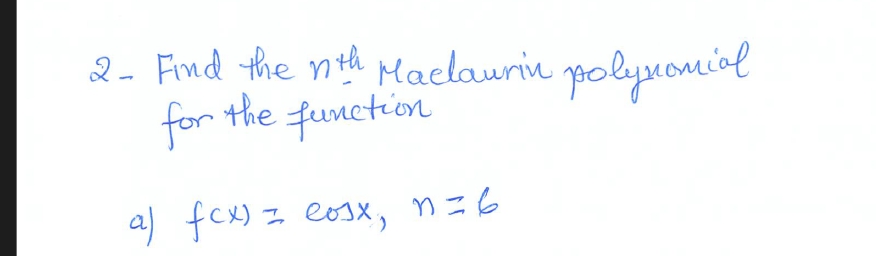 2- Find the nth Maclaurin polynomial
for the function
a) f(x) = cosx, n=6